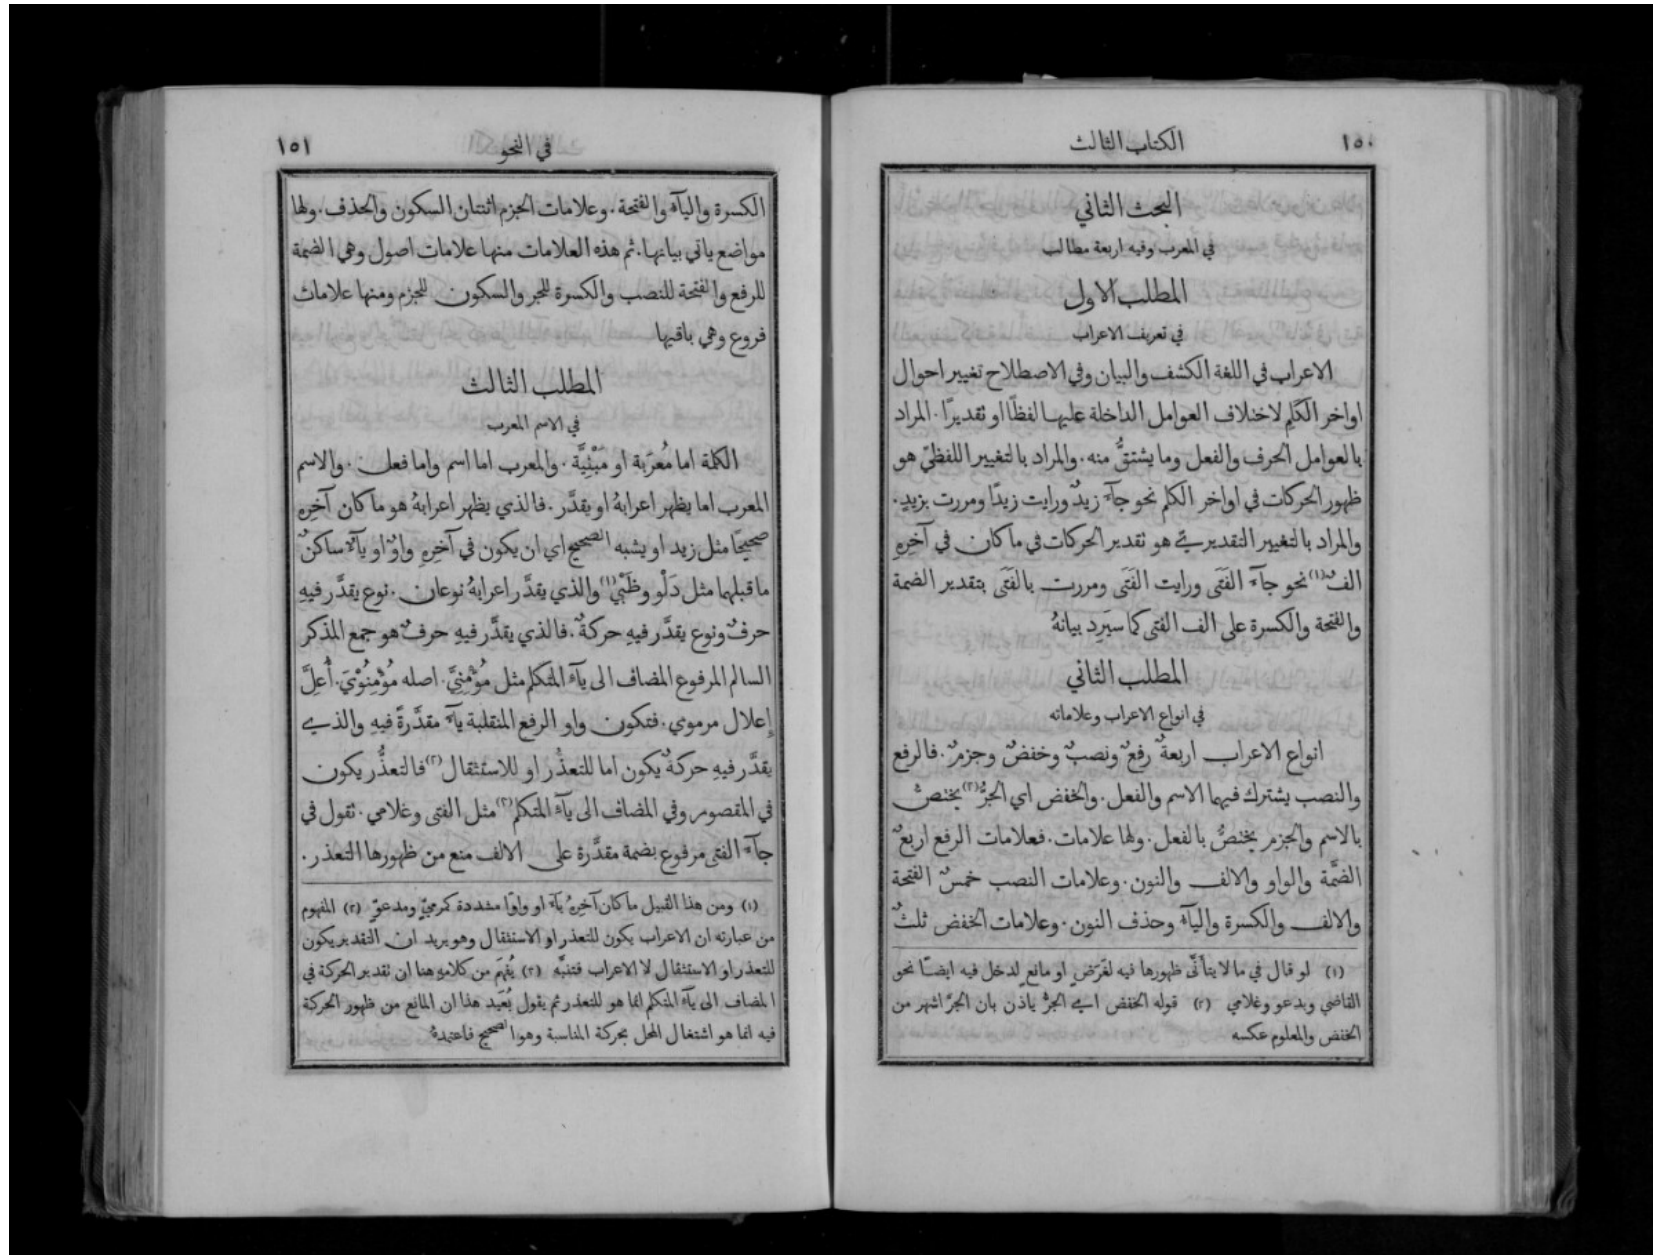 ١٥٠
الكتاب الثالث
البحث الثاني
في المعرب وفيه اربعة مطالب
المطلب الاول
في تعريف الاعراب
الاعراب في اللغة الكشف والبيان وفي الاصطلاح تغيير احوال
اواخر الكَلِمِ لاختلاف العوامل الداخلة عليها لفظًا او تقديرًا. المراد
بالعوامل الحرف والفعل وما يشتقُّ منه. والمراد بالتغيير اللفظيّ هو
ظهور الحركات في اواخر الكلم نحو جآءَ زيدٌ ورايت زيدًا ومررت بزيدٍ.
والمراد بالتغيير التقديريّ هو تقدير الحركات في ما كان في آخرِهِ
الفٌ (١) نحو جآءَ الفَتَى ورايت الفَتَى ومررت بالفَتَى بتقدير الضمة
والفتحة والكسرة على الف الفتى كما سيَرِد بيانهُ
المطلب الثاني
في انواع الاعراب وعلاماته
انواع الاعراب اربعةٌ رفعٌ ونصبٌ وخفضٌ وجزمٌ. فالرفع
والنصب يشترك فيهما الاسم والفعل. والخفض اي الجرُّ (٢) يختصُّ
بالاسم والجزم يختصُّ بالفعل. ولها علامات. فعلامات الرفع اربعٌ
الضمَّة والواو والالف والنون. وعلامات النصب خمسٌ الفتحة
والالف والكسرة واليآءُ وحذف النون. وعلامات الخفض ثلثٌ
(١) لو قال في ما لا يتأتَّى ظهورها فيه لغَرَضٍ او مانعٍ لدخل فيه ايضًا نحو
القاضي ويدعو وغلامي (٢) قوله الخفض اي الجرُّ ياذن بان الجرَّ اشهر من
الخفض والمعلوم عكسه
في النحو
١٥١
الكسرة واليآءُ والفتحة. وعلامات الجزم اثنتان السكون والحذف. ولها
مواضع ياتي بيانها. ثم هذه العلامات منها علامات اصول وهي الضمة
للرفع والفتحة للنصب والكسرة للجر والسكون للجزم ومنها علامات
فروع وهي باقيها
المطلب الثالث
في الاسم المعرب
الكلمة اما مُعرَبة او مَبْنِيَّة. والمعرب اما اسم واما فعل. والاسم
المعرب اما يظهر اعرابهُ او يقدَّر. فالذي يظهر اعرابهُ هو ما كان آخرِه
صحيحًا مثل زيد او يشبه الصحيح اي ان يكون في آخرِهِ واوٌ او يآءٌ ساكنٌ
ما قبلهما مثل دَلْو وظَبْي (١) والذي يقدَّر اعرابهُ نوعان. نوع يقدَّر فيهِ
حرفٌ ونوع يقدَّر فيهِ حركةٌ. فالذي يقدَّر فيهِ حرفٌ هو جمع المذكر
السالم المرفوع المضاف الى يآءِ المتكلم مثل مُؤْمِنِيَّ. اصله مُؤْمِنُوْيَ. أُعِلَّ
إعلال مرموي. فتكون واو الرفع المنقلبة يآءً مقدَّرةً فيهِ والذي
يقدَّر فيهِ حركةٌ يكون اما للتعذُّر او للاستثقال (٢) فالتعذُّر يكون
في المقصور وفي المضاف الى يآءِ المتكلم (٣) مثل الفتى وغلامي. تقول في
جآءَ الفتى مرفوع بضمة مقدَّرة على الالف منع من ظهورها التعذر.
(١) ومن هذا القبيل ما كان آخرهُ يآءً او واوًا مشددة كمرميٍّ ومدعوٍّ (٢) المفهوم
من عبارته ان الاعراب يكون للتعذر او الاستثقال وهو يريد ان التقدير يكون
للتعذر او الاستثقال لا الاعراب فتنبَّه (٣) يُفهَم من كلامهِ هنا ان تقدير الحركة في
المضاف الى يآءِ المتكلم انما هو للتعذر ثم يقول بُعَيد هذا ان المانع من ظهور الحركة
فيه انما هو اشتغال المحل بحركة المناسبة وهو الصحيح فاعتمدهُ